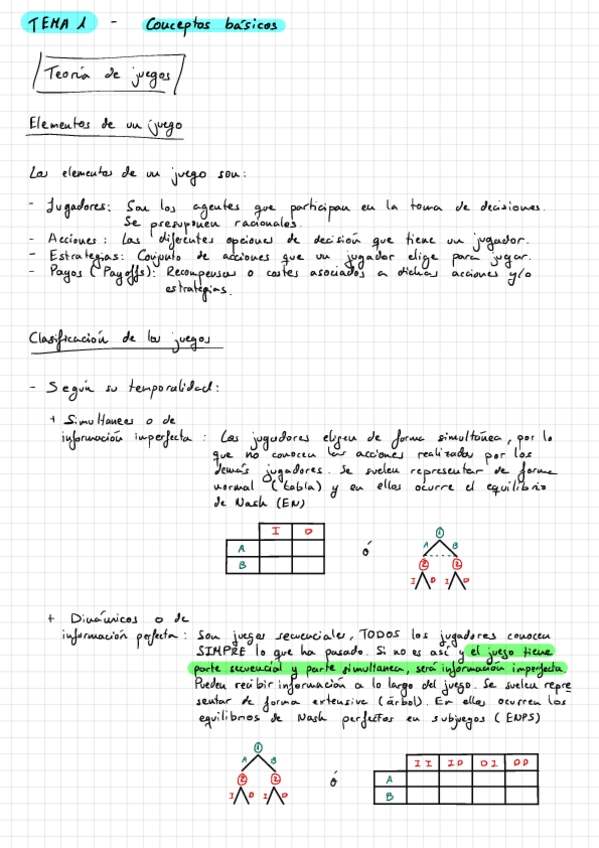 TEMA 1 - Conceptos básicos
Teoría de juegos
Elementos de un juego
Los elementos de un juego son:
- Jugadores: Son los agentes que participan en la toma de decisiones.
Se presuponen racionales.
- Acciones: Las diferentes opciones de decisión que tiene un jugador.
- Estrategias: Conjunto de acciones que un jugador elige para jugar.
- Pagos (Payoffs): Recompensas o costes asociados a dichas acciones y/o
estrategias.
Clasificación de los juegos
- Según su temporalidad:
+ Simultaneos o de
información imperfecta : Los jugadores eligen de forma simultánea, por lo
que no conocen las acciones realizadas por los
demás jugadores. Se suelen representar de forma
normal (tabla) y en ellos ocurre el equilibrio
de Nash (EN)
I D
A
B
ó
1
A B
2 2
I D I D
+ Dinámicos o de
información perfecta : Son juegos secuenciales, TODOS los jugadores conocen
SIMPRE lo que ha pasado. Si no es así y el juego tiene
parte secuencial y parte simultanea, será información imperfecta
Pueden recibir información a lo largo del juego. Se suelen repre
sentar de forma extensiva (árbol). En ellos ocurren los
equilibrios de Nash perfectos en subjuegos (ENPS)
1
A B
2 2
I D I D
ó
II ID DI DD
A
B